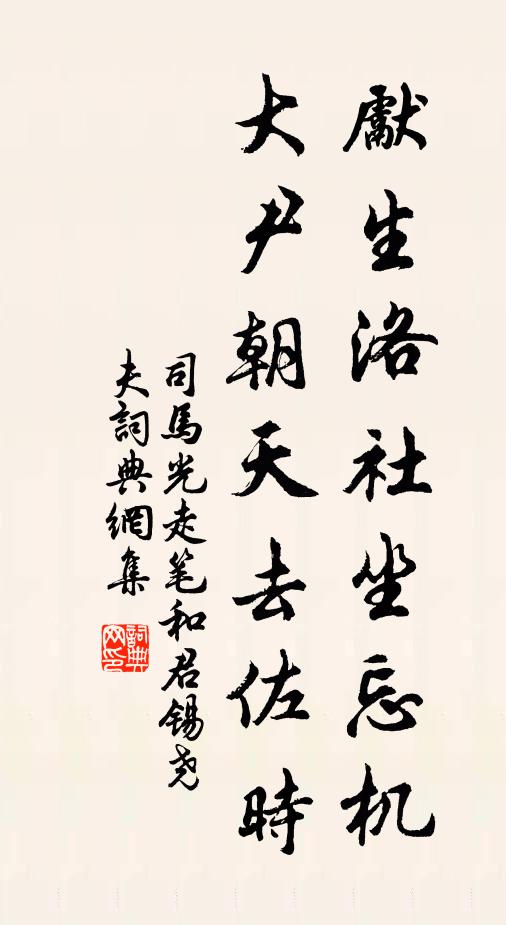 獻生洛社坐忘机
大尹朝天去佐時
司馬光走笔和君锡尧
夫詞典網集
詞典
网印